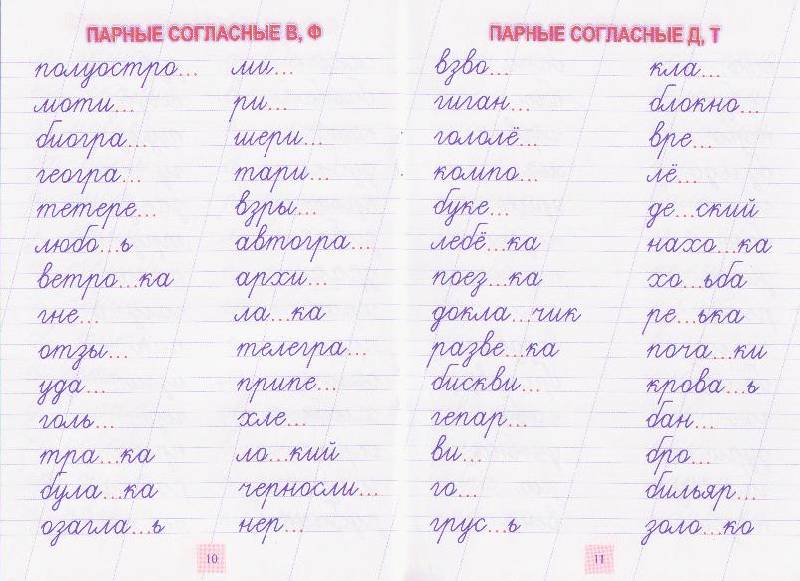 ПАРНЫЕ СОГЛАСНЫЕ В, Ф
полуостро... ми...
моти... ри...
биогра... шери...
геогра... тари...
тетере... взры...
любо...ь автогра...
ветро...ка архи...
гне... ла...ка
отзы... телегра...
уда... припе...
голь... хле...
тра...ка ло...кий
була...ка черносли...
озагла...ь нер...
10
ПАРНЫЕ СОГЛАСНЫЕ Д, Т
взво... кла...
гиган... блокно...
гололё... вре...
компо... лё...
буке... де...ский
лебё...ка нахо...ка
поез...ка хо...ьба
докла...чик ре...ька
разве...ка поча...ки
бискви... крова...ь
гепар... бан...
ви... бро...
го... бильяр...
грус...ь золо...ко
11